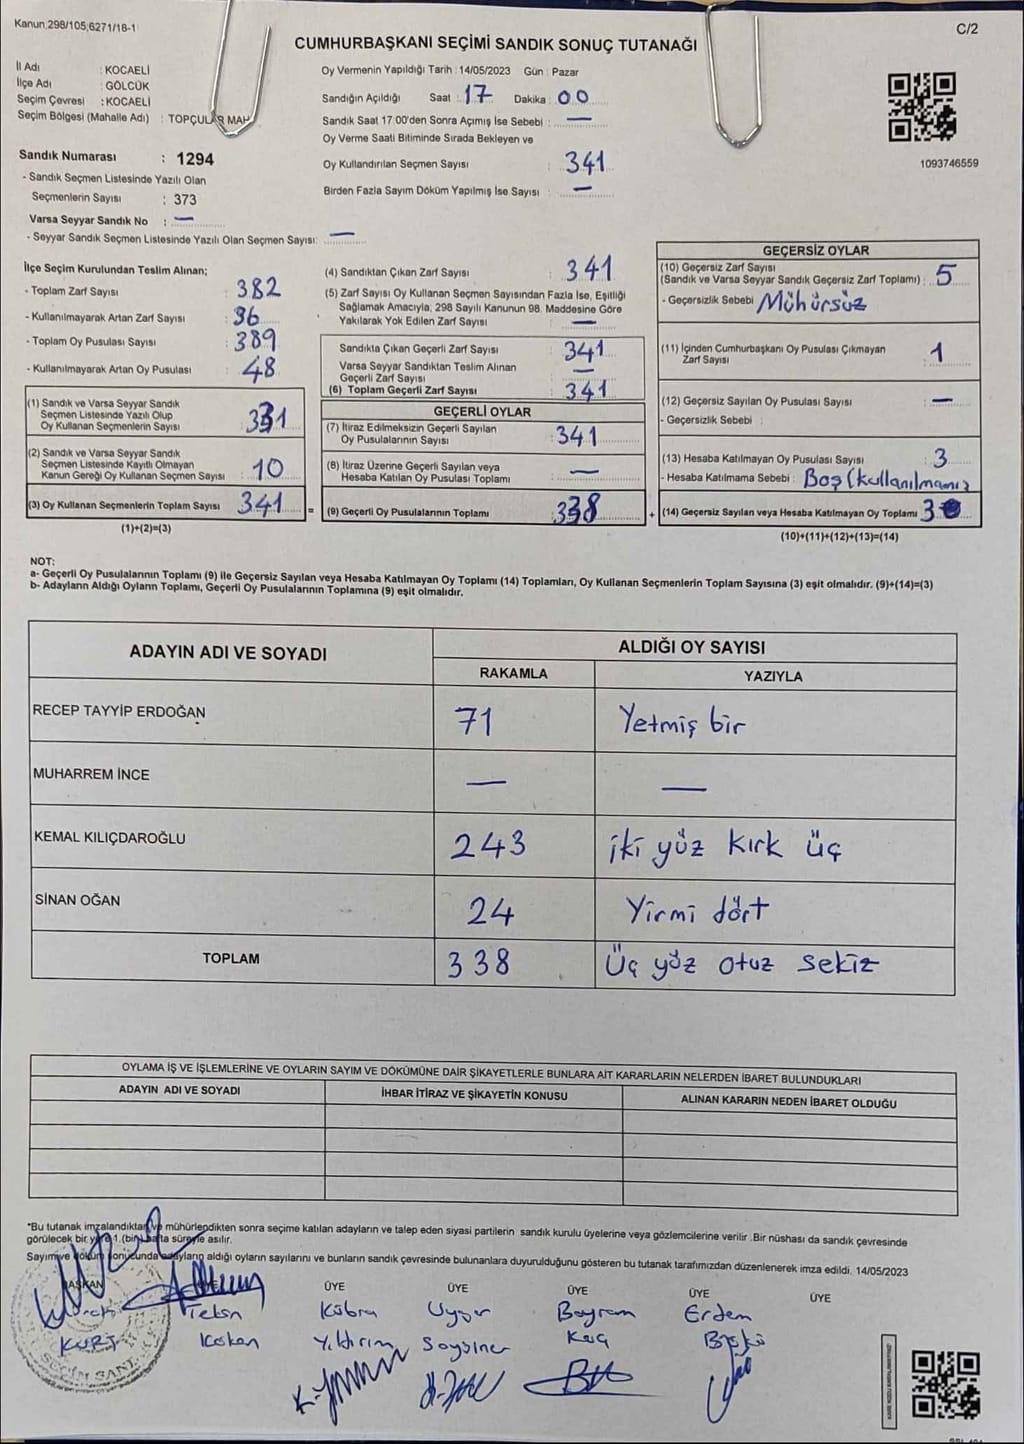 Kanun;298/105;6271/18-1
C/2
CUMHURBAŞKANI SEÇİMİ SANDIK SONUÇ TUTANAĞI
İl Adı : KOCAELİ
İlçe Adı : GÖLCÜK
Seçim Çevresi : KOCAELİ
Seçim Bölgesi (Mahalle Adı) : TOPÇULAR MAH
Sandık Numarası : 1294
- Sandık Seçmen Listesinde Yazılı Olan
Seçmenlerin Sayısı : 373
Varsa Seyyar Sandık No : —
- Seyyar Sandık Seçmen Listesinde Yazılı Olan Seçmen Sayısı: —
Oy Vermenin Yapıldığı Tarih : 14/05/2023 Gün : Pazar
Sandığın Açıldığı Saat : 17 Dakika : 00
Sandık Saat 17:00'den Sonra Açımış İse Sebebi : —
Oy Verme Saati Bitiminde Sırada Bekleyen ve
Oy Kullandırılan Seçmen Sayısı : 341
Birden Fazla Sayım Döküm Yapılmış İse Sayısı : —
1093746559
İlçe Seçim Kurulundan Teslim Alınan;
- Toplam Zarf Sayısı : 382
- Kullanılmayarak Artan Zarf Sayısı : 36
- Toplam Oy Pusulası Sayısı : 389
- Kullanılmayarak Artan Oy Pusulası : 48
(1) Sandık ve Varsa Seyyar Sandık
Seçmen Listesinde Yazılı Olup
Oy Kullanan Seçmenlerin Sayısı : 331
(2) Sandık ve Varsa Seyyar Sandık
Seçmen Listesinde Kayıtlı Olmayan
Kanun Gereği Oy Kullanan Seçmen Sayısı : 10
(3) Oy Kullanan Seçmenlerin Toplam Sayısı : 341
(1)+(2)=(3)
(4) Sandıktan Çıkan Zarf Sayısı : 341
(5) Zarf Sayısı Oy Kullanan Seçmen Sayısından Fazla İse, Eşitliği
Sağlamak Amacıyla; 298 Sayılı Kanunun 98. Maddesine Göre
Yakılarak Yok Edilen Zarf Sayısı : —
Sandıkta Çıkan Geçerli Zarf Sayısı : 341
Varsa Seyyar Sandıktan Teslim Alınan
Geçerli Zarf Sayısı : —
(6) Toplam Geçerli Zarf Sayısı : 341
GEÇERLİ OYLAR
(7) İtiraz Edilmeksizin Geçerli Sayılan
Oy Pusulalarının Sayısı : 341
(8) İtiraz Üzerine Geçerli Sayılan veya
Hesaba Katılan Oy Pusulası Toplamı : —
= (9) Geçerli Oy Pusulalarının Toplamı : 338
GEÇERSİZ OYLAR
(10) Geçersiz Zarf Sayısı
(Sandık ve Varsa Seyyar Sandık Geçersiz Zarf Toplamı) : 5
- Geçersizlik Sebebi : Mühürsüz
(11) İçinden Cumhurbaşkanı Oy Pusulası Çıkmayan
Zarf Sayısı : 1
(12) Geçersiz Sayılan Oy Pusulası Sayısı : —
- Geçersizlik Sebebi :
(13) Hesaba Katılmayan Oy Pusulası Sayısı : 3
- Hesaba Katılmama Sebebi : Boş (kullanılmamış
+ (14) Geçersiz Sayılan veya Hesaba Katılmayan Oy Toplamı : 3
(10)+(11)+(12)+(13)=(14)
NOT:
a- Geçerli Oy Pusulalarının Toplamı (9) ile Geçersiz Sayılan veya Hesaba Katılmayan Oy Toplamı (14) Toplamları, Oy Kullanan Seçmenlerin Toplam Sayısına (3) eşit olmalıdır. (9)+(14)=(3)
b- Adayların Aldığı Oyların Toplamı, Geçerli Oy Pusulalarının Toplamına (9) eşit olmalıdır.
ADAYIN ADI VE SOYADI
ALDIĞI OY SAYISI
RAKAMLA YAZIYLA
RECEP TAYYİP ERDOĞAN 71 Yetmiş bir
MUHARREM İNCE — —
KEMAL KILIÇDAROĞLU 243 iki yüz kırk üç
SİNAN OĞAN 24 Yirmi dört
TOPLAM 338 Üç yüz otuz sekiz
OYLAMA İŞ VE İŞLEMLERİNE VE OYLARIN SAYIM VE DÖKÜMÜNE DAİR ŞİKAYETLERLE BUNLARA AİT KARARLARIN NELERDEN İBARET BULUNDUKLARI
ADAYIN ADI VE SOYADI İHBAR İTİRAZ VE ŞİKAYETİN KONUSU ALINAN KARARIN NEDEN İBARET OLDUĞU
*Bu tutanak imzalandıktan ve mühürlendikten sonra seçime katılan adayların ve talep eden siyasi partilerin sandık kurulu üyelerine veya gözlemcilerine verilir .Bir nüshası da sandık çevresinde
görülecek bir yere 1 (bir) hafta süreyle asılır.
Sayım ve döküm sonucunda adayların aldığı oyların sayılarını ve bunların sandık çevresinde bulunanlara duyurulduğunu gösteren bu tutanak tarafımızdan düzenlenerek imza edildi. 14/05/2023
BAŞKAN ÜYE ÜYE ÜYE ÜYE ÜYE
Kübra Uygur Bayram Erdem
KURT Yıldırım
SEÇİM SAND